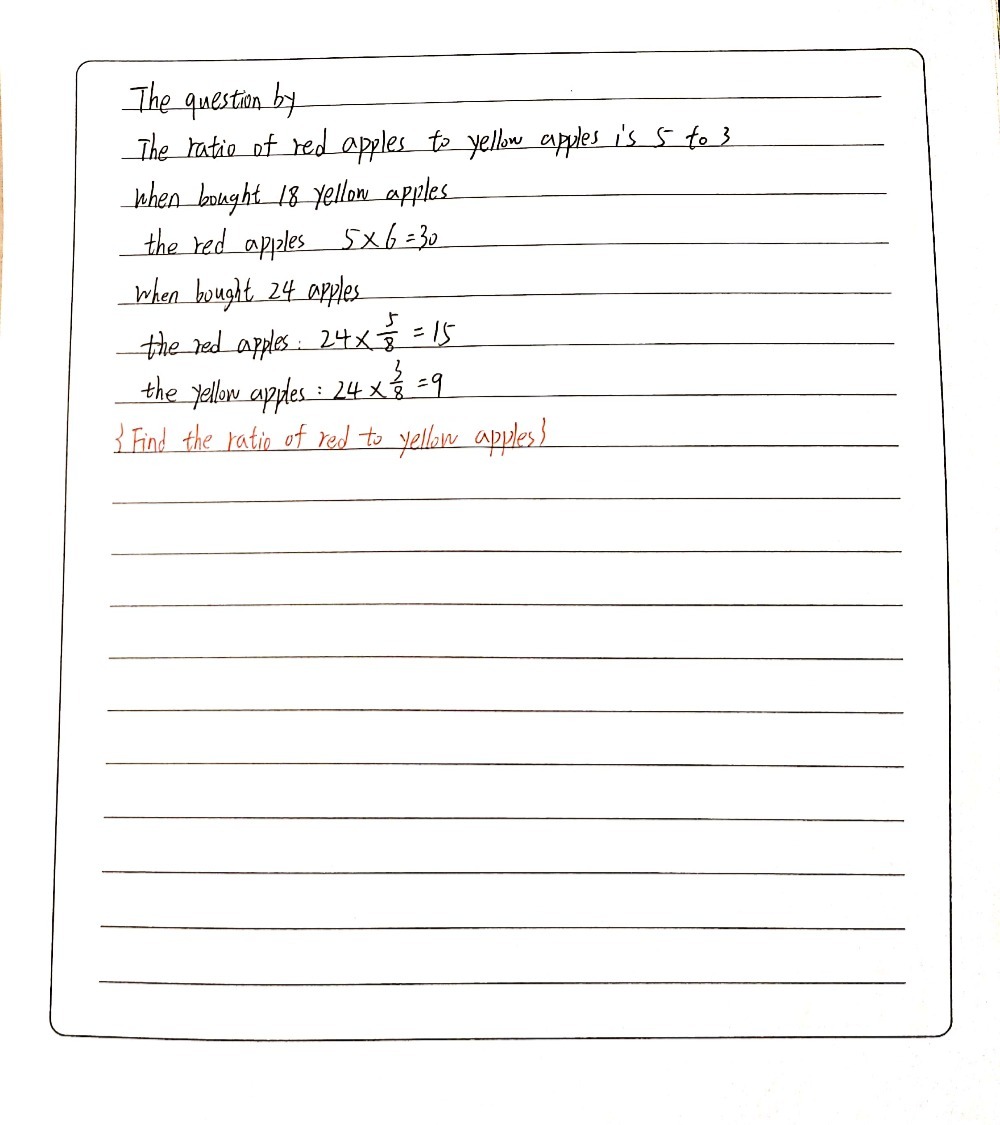 The question by
The ratio of red apples to yellow apples is 5 to 3
when bought 18 yellow apples
the red apples 5×6=30
when bought 24 apples
the red apples: 24×5/8=15
the yellow apples: 24×3/8=9
{Find the ratio of red to yellow apples}